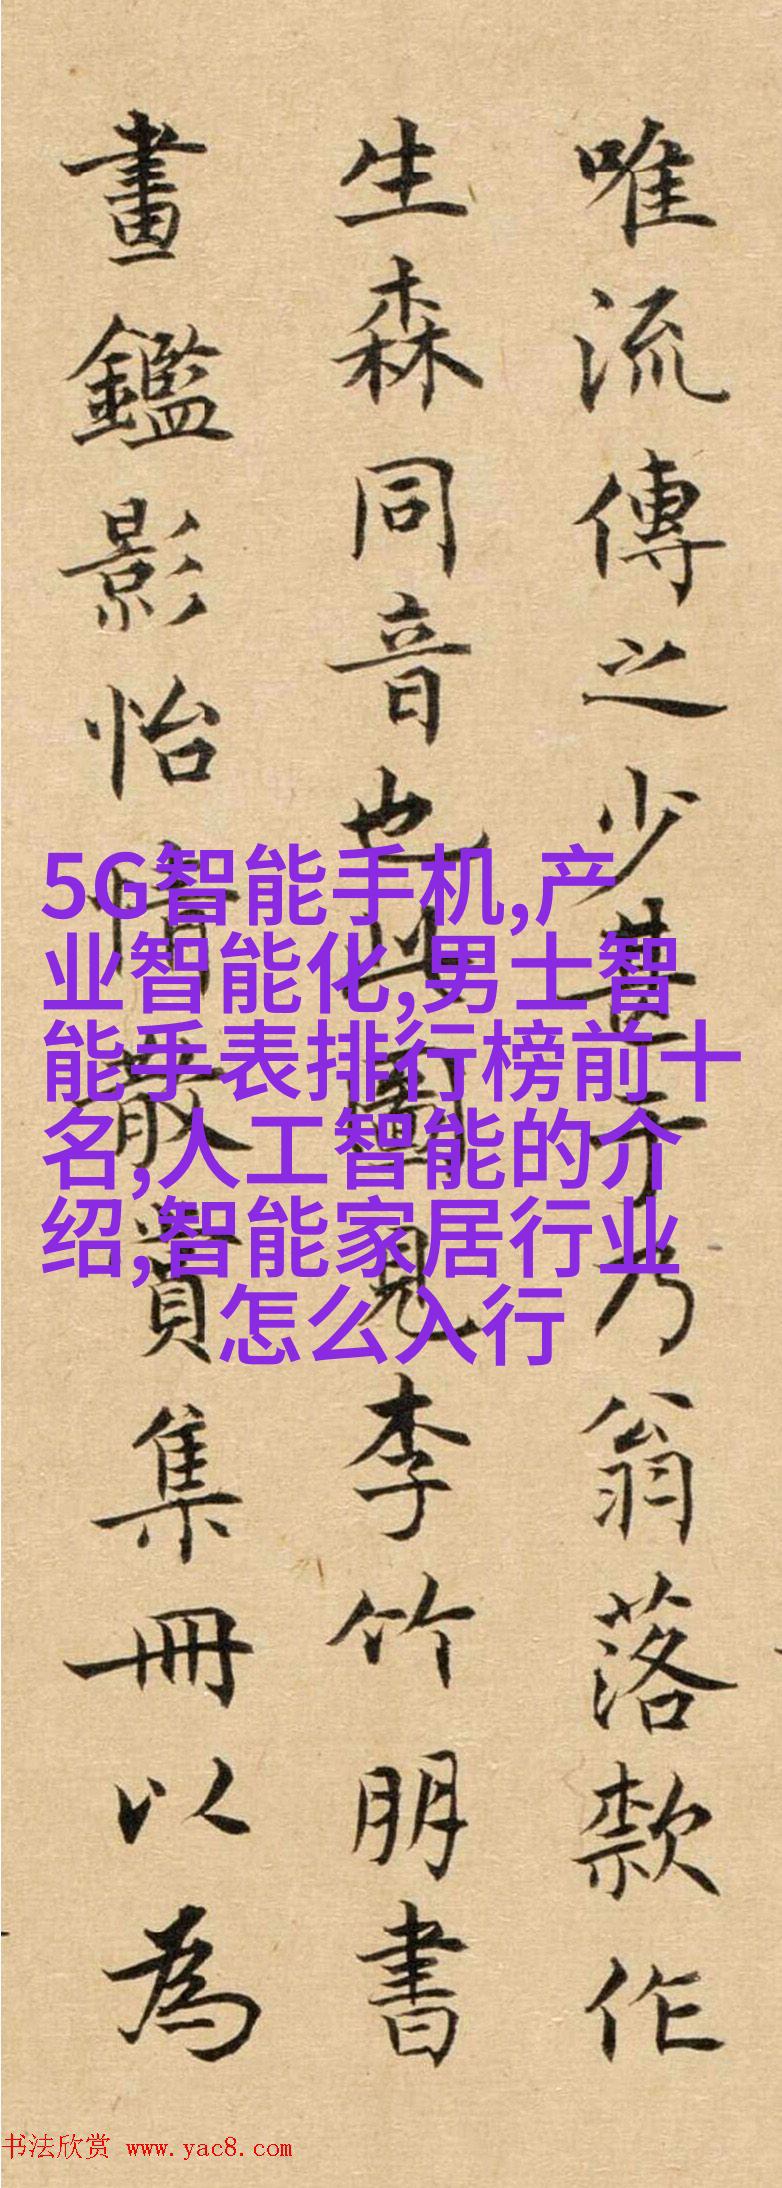 唯流傳之少甚于乃翁落款作
生森同音也此圖見李竹朋書
畫鑑影怡情散賞集冊以為
5G智能手机,产
业智能化,男士智
能手表排行榜前十
名,人工智能的介
绍,智能家居行业
怎么入行
书法欣赏 www.yac8.com